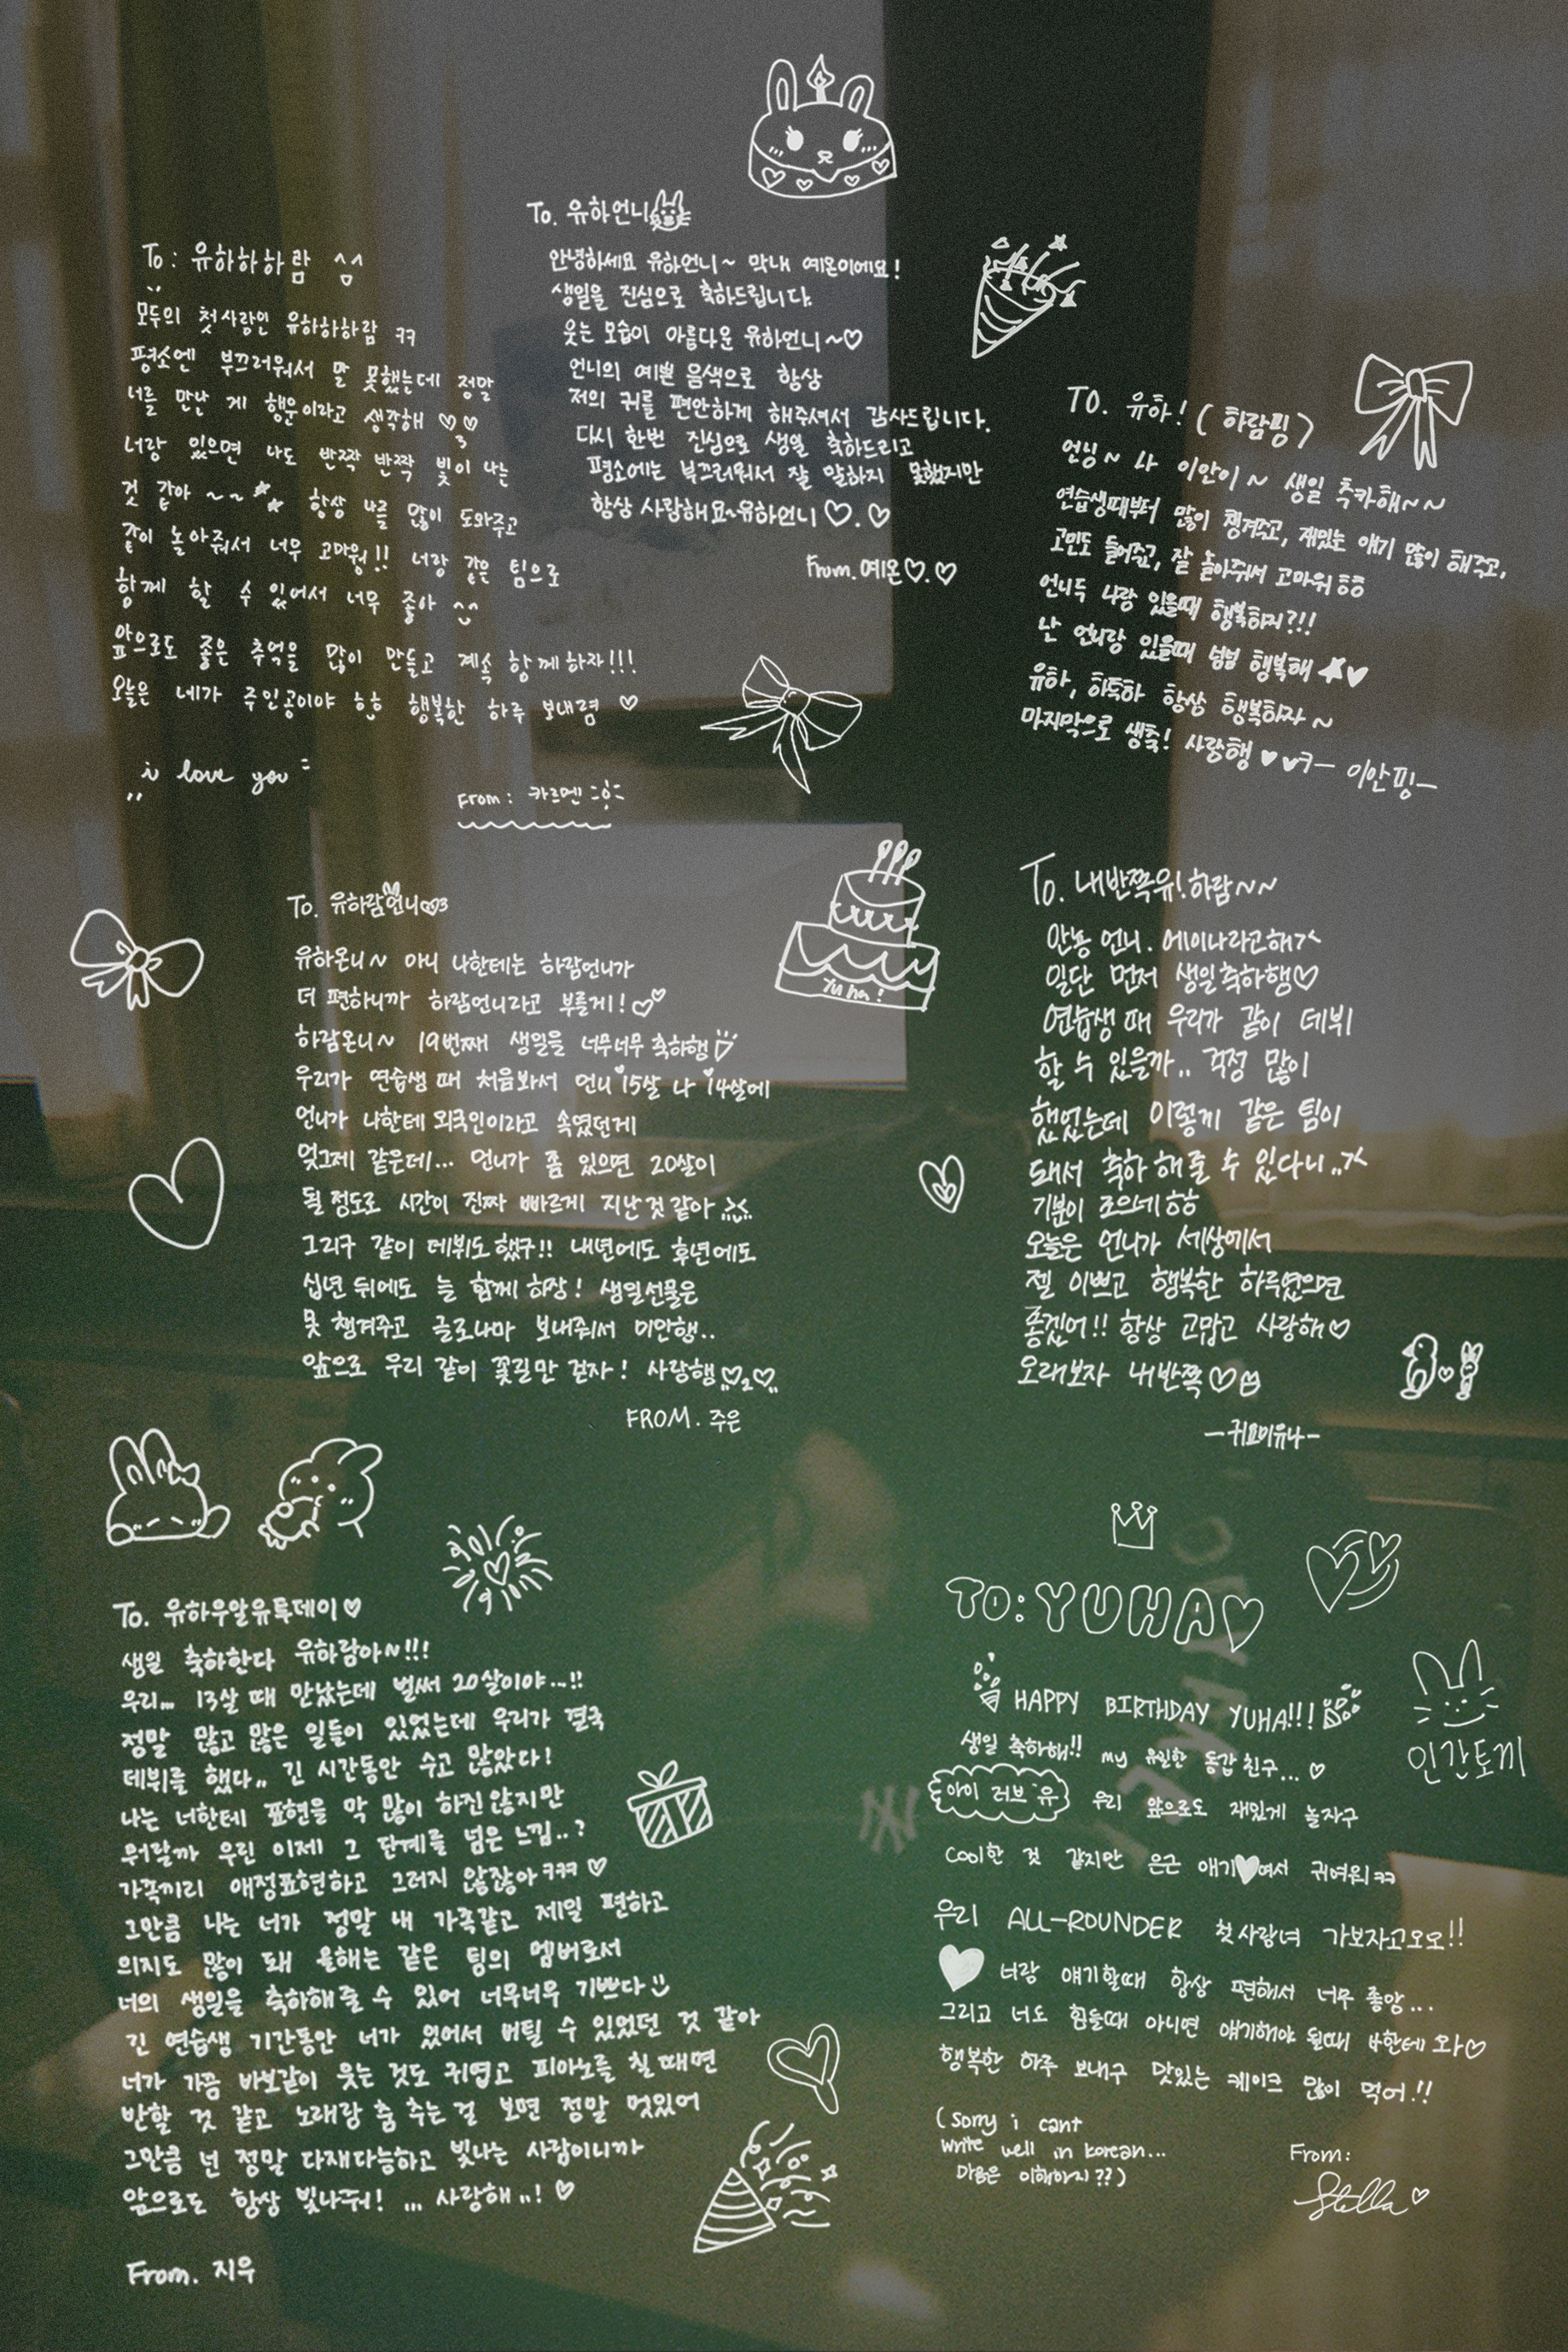 To: 유하하하람 ^^
모두의 첫사랑인 유하하하람 ㅋㅋ
평소엔 부끄러워서 말 못했는데 정말
너를 만난 게 행운이라고 생각해 ♡♡
너랑 있으면 나도 반짝 반짝 빛이 나는
것 같아 ~~ 항상 나를 많이 도와주고
같이 놀아줘서 너무 고마워!! 너랑 같은 팀으로
함께 할 수 있어서 너무 좋아
앞으로도 좋은 추억을 많이 만들고 계속 함께하자!!!
오늘은 네가 주인공이야 행복한 하루 보내렴 ♡
i love you
From: 카르멘
To. 유하언니
안녕하세요 유하언니~ 막내 예온이에요!
생일을 진심으로 축하드립니다.
웃는 모습이 아름다운 유하언니~♡
언니의 예쁜 음색으로 항상
저의 귀를 편안하게 해주셔서 감사드립니다.
다시 한번 진심으로 생일 축하드리고
평소에는 부끄러워서 잘 말하지 못했지만
항상 사랑해요~유하언니 ♡.♡
From. 예온♡.♡
TO. 유하! (하람핑)
언닝~ 나 이안이~ 생일 추카해~~
연습생때부터 많이 챙겨주고, 재밌는 얘기 많이 해주고,
고민도 들어주고, 잘 놀아줘서 고마워ㅎㅎ
언니두 나랑 있을때 행복하지?!!
난 언니랑 있을때 넘넘 행복해 ★♥
유하, 하투하 항상 행복하자~
마지막으로 생축! 사랑행 ♥♥ㅋ
— 이안핑—
To. 유하람언니♡3
유하온니~ 아니 나한테는 하람언니가
더 편하니까 하람언니라고 부를게!♡♡
하람온니~ 19번째 생일을 너무너무 축하행
우리가 연습생 때 처음봐서 언니 15살 나 14살에
언니가 나한테 외국인이라고 속였던게
엊그제 같은데... 언니가 좀 있으면 20살이
될 정도로 시간이 진짜 빠르게 지난것 같아
그리구 같이 데뷔도 했구!! 내년에도 후년에도
십년 뒤에도 늘 함께 하장! 생일선물은
못 챙겨주고 글로나마 보내줘서 미안행..
앞으로 우리 같이 꽃길만 걷자! 사랑행♡♡
FROM. 주은
Yuha!
To. 내반쪽유!하람~~
안뇽 언니. 에이나라고해ㅋㅋ
일단 먼저 생일축하행♡
연습생 때 우리가 같이 데뷔
할 수 있을까.. 걱정 많이
했었는데 이렇게 같은 팀이
돼서 축하 해줄 수 있다니..ㅋㅋ
기분이 조으네ㅎㅎ
오늘은 언니가 세상에서
젤 이쁘고 행복한 하루였으면
좋겠어!! 항상 고맙고 사랑해♡
오래보자 내반쪽♡
—귀요미유나—
To. 유하우알유투데이♡
생일 축하한다 유하람아~!!!
우리... 13살 때 만났는데 벌써 20살이야...!!
정말 많고 많은 일들이 있었는데 우리가 결국
데뷔를 했다.. 긴 시간동안 수고 많았다!
나는 너한테 표현을 막 많이 하진 않지만
뭐랄까 우린 이제 그 단계를 넘은 느낌..?
가족끼리 애정표현하고 그러지 않잖아ㅋㅋㅋ ♡
그만큼 나는 너가 정말 내 가족같고 제일 편하고
의지도 많이 돼 올해는 같은 팀의 멤버로서
너의 생일을 축하해줄 수 있어 너무너무 기쁘다
긴 연습생 기간동안 너가 있어서 버틸 수 있었던 것 같아
너가 가끔 바보같이 웃는 것도 귀엽고 피아노를 칠 때면
반할 것 같고 노래랑 춤 추는걸 보면 정말 멋있어
그만큼 넌 정말 다재다능하고 빛나는 사람이니까
앞으로도 항상 빛나줘! ... 사랑해..! ♡
From. 지우
TO: YUHA♡
HAPPY BIRTHDAY YUHA!!!
생일 축하해!! my 유일한 동갑 친구... ♡
아이 러브 유 우리 앞으로도 재밌게 놀자구
cool한 것 같지만 은근 애기♥여서 귀여워ㅋㅋ
우리 ALL-ROUNDER 첫사랑녀 가보자고오오!!
♥ 너랑 얘기할때 항상 편해서 너무 좋앙...
그리고 너도 힘들때 아니면 얘기해야 될때 나한테 와♡
행복한 하루 보내구 맛있는 케이크 많이 먹어!!
(sorry i cant
write well in korean...
마음은 이해하지??)
From:
Stella♡
인간토끼